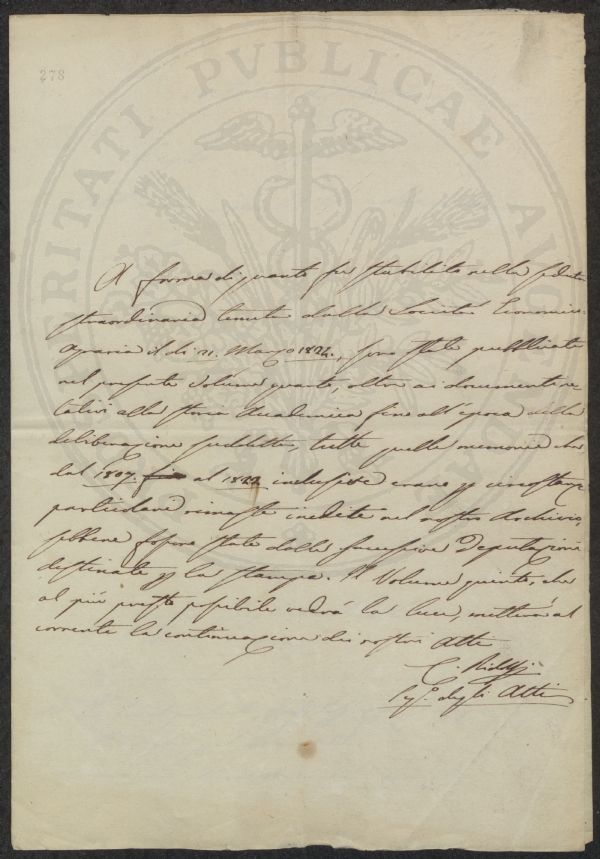 278
PROSPERITATI PVBLICAE AVGENDAE
A forma di quanto fu stabilito nella seduta
straordinaria tenuta dalla Società Economico-
agraria il dì 21. Marzo 1824., sono state pubblicate
nel presente Volume quarto, oltre ai documenti re
lativi alla storia Accademica fino all'epoca della
deliberazione suddetta, tutte quelle memorie che
dal 1807. al 1822 inclusive erano p circostanze
particolari rimaste inedite nel nostro Archivio,
sebbene fossero state dalle successive Deputazioni
destinate p la stampa. Il Volume quinto, che
al più presto possibile vedrà la luce, metterà al
corrente la continuazione dei nostri Atti
C. Ridolfi
Seg.o degli Atti